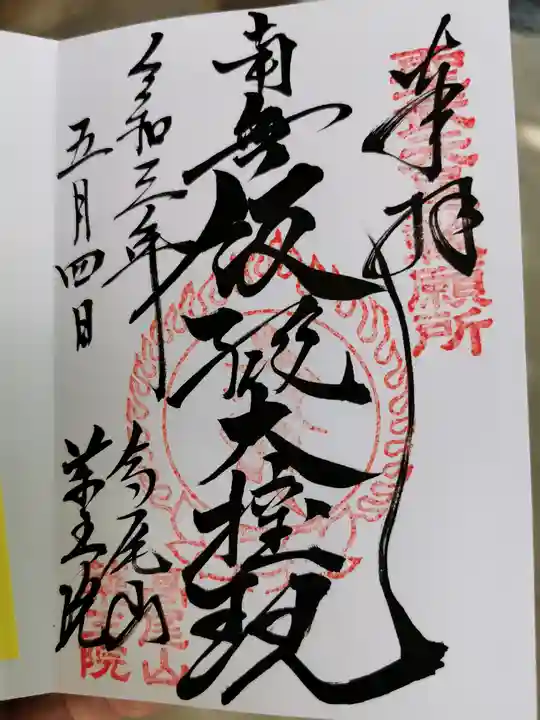 奉拝
南無飯綱大権現
令和三年
五月四日
高尾山
薬王院
願所